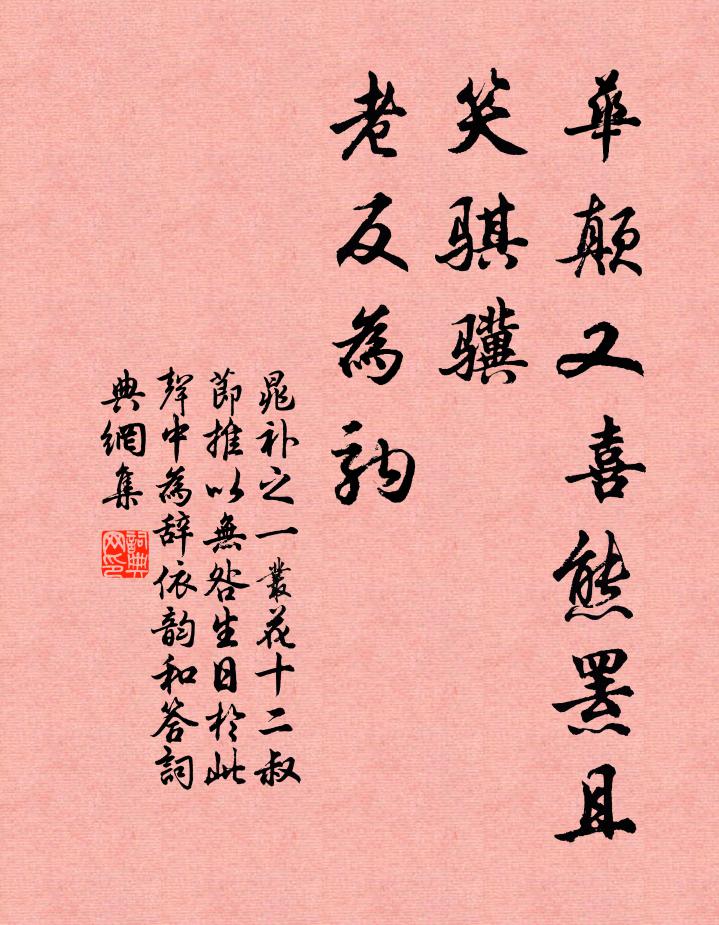 華顛又喜熊羆且
笑騏驥
老反為駒
晁补之一叢花十二叔
節推以無咎生日於此
聲中為辞依韵和答詞
典網集
詞典网印